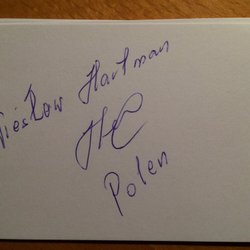 Wiesław Hartman
Polen